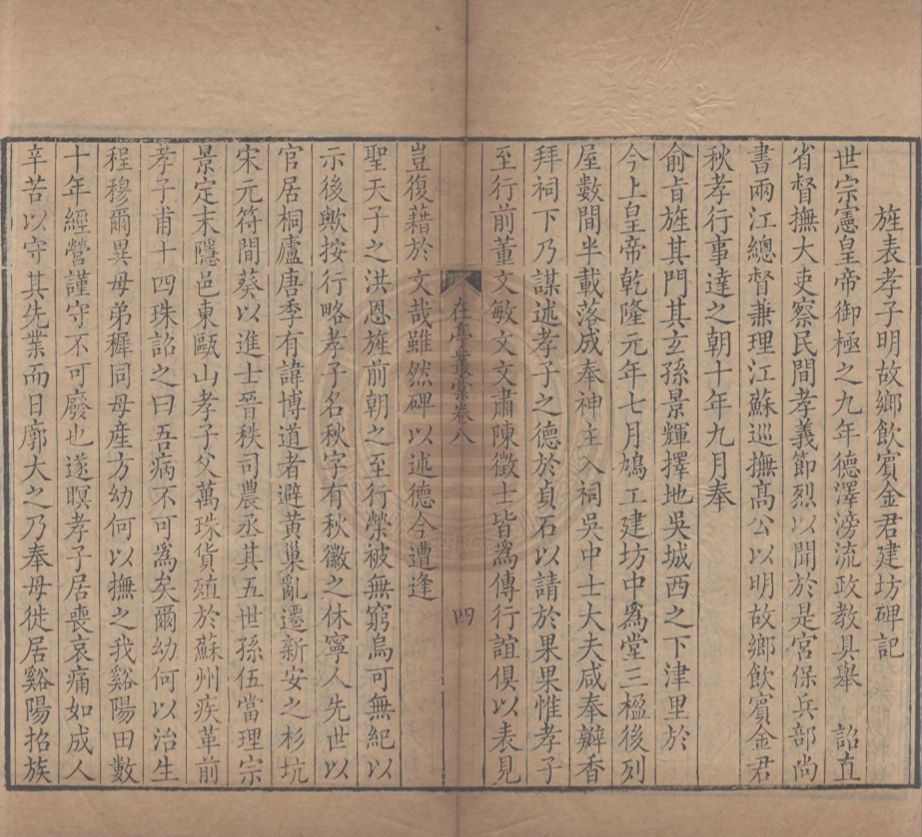 旌表孝子明故鄉飲賓金君建坊碑記
世宗憲皇帝御極之九年德澤滂流政教具舉　詔直
省督撫大吏察民間孝義節烈以聞於是宮保兵部尚
書兩江總督兼理江蘇巡撫高公以明故鄉飲賓金君
秋孝行事達之朝十年九月奉
俞旨旌其門其玄孫景輝擇地吳城西之下津里於
今上皇帝乾隆元年七月鳩工建坊中爲堂三楹後列
屋數間半載落成奉神主入祠吳中士大夫咸奉瓣香
拜祠下乃謀述孝子之德於貞石以請於果果惟孝子
至行前董文敏文文肅陳徵士皆爲傳行誼俱以表見
在亭叢稾卷八
四
豈復藉於文哉雖然碑以述德今遭逢
聖天子之洪恩旌前朝之至行榮被無窮烏可無紀以
示後歟按行略孝子名秋字有秋徽之休寧人先世以
官居桐廬唐季有諱博道者避黃巢亂遷新安之杉坑
宋元符間葵以進士晉秩司農丞其五世孫伍當理宗
景定末隱邑東甌山孝子父萬珠貨殖於蘇州疾革前
孝子甫十四珠詔之曰吾病不可爲矣爾幼何以治生
程穆爾異母弟穉同母產方幼何以撫之我谿陽田數
十年經營謹守不可廢也遂瞑孝子居喪哀痛如成人
辛苦以守其先業而日廓大之乃奉母徙居谿陽招族